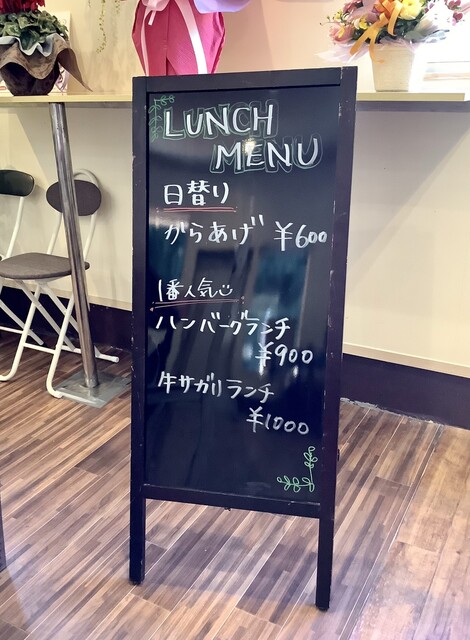 LUNCH
MENU
日替り
からあげ ¥600
1番人気
ハンバーグランチ
¥900
牛サガリランチ
¥1000